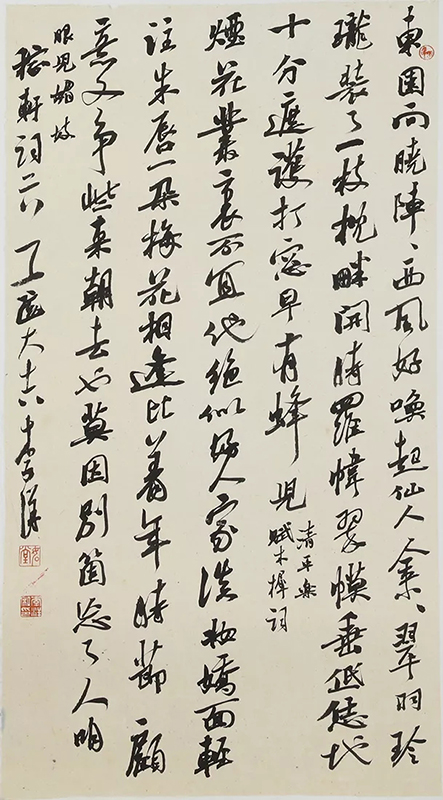 東園向曉陣、西風好喚起仙人金、翠羽玲
瓏裝了一枝枕畔開時羅幃翠幙垂低恁地
十分遮護打窗早有蜂兒
清平樂
賦木樨詞
煙花叢裏不宜他絕似好人家淡妝嬌面輕
注朱唇一朵梅花相逢比著年時節顧
意又爭些來朝去也莫因別箇忘了人咱
眼兒媚妓
稼軒詞二